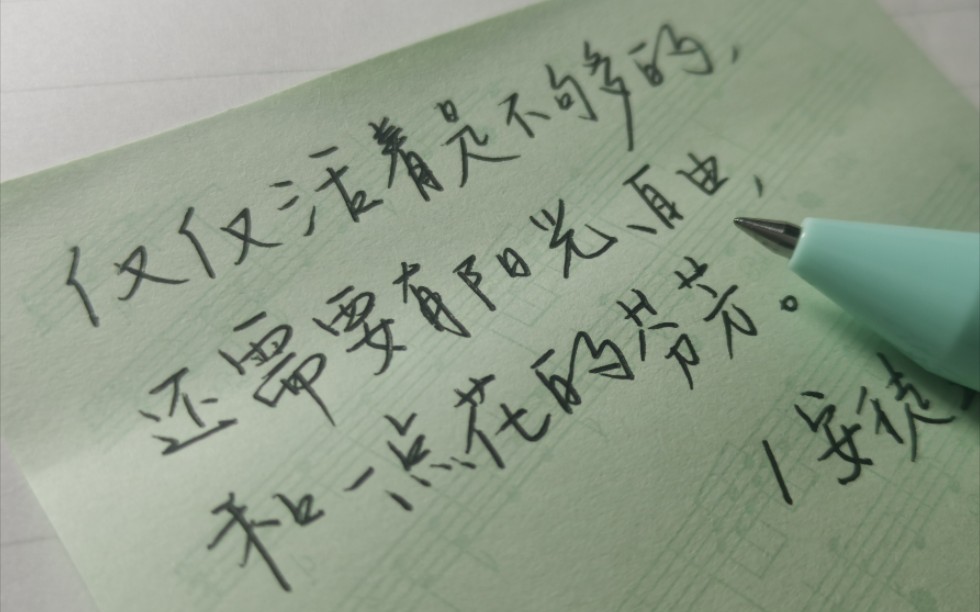 仅仅活着是不够的,
还需要有阳光、自由,
和一点花的芬芳。
/安徒